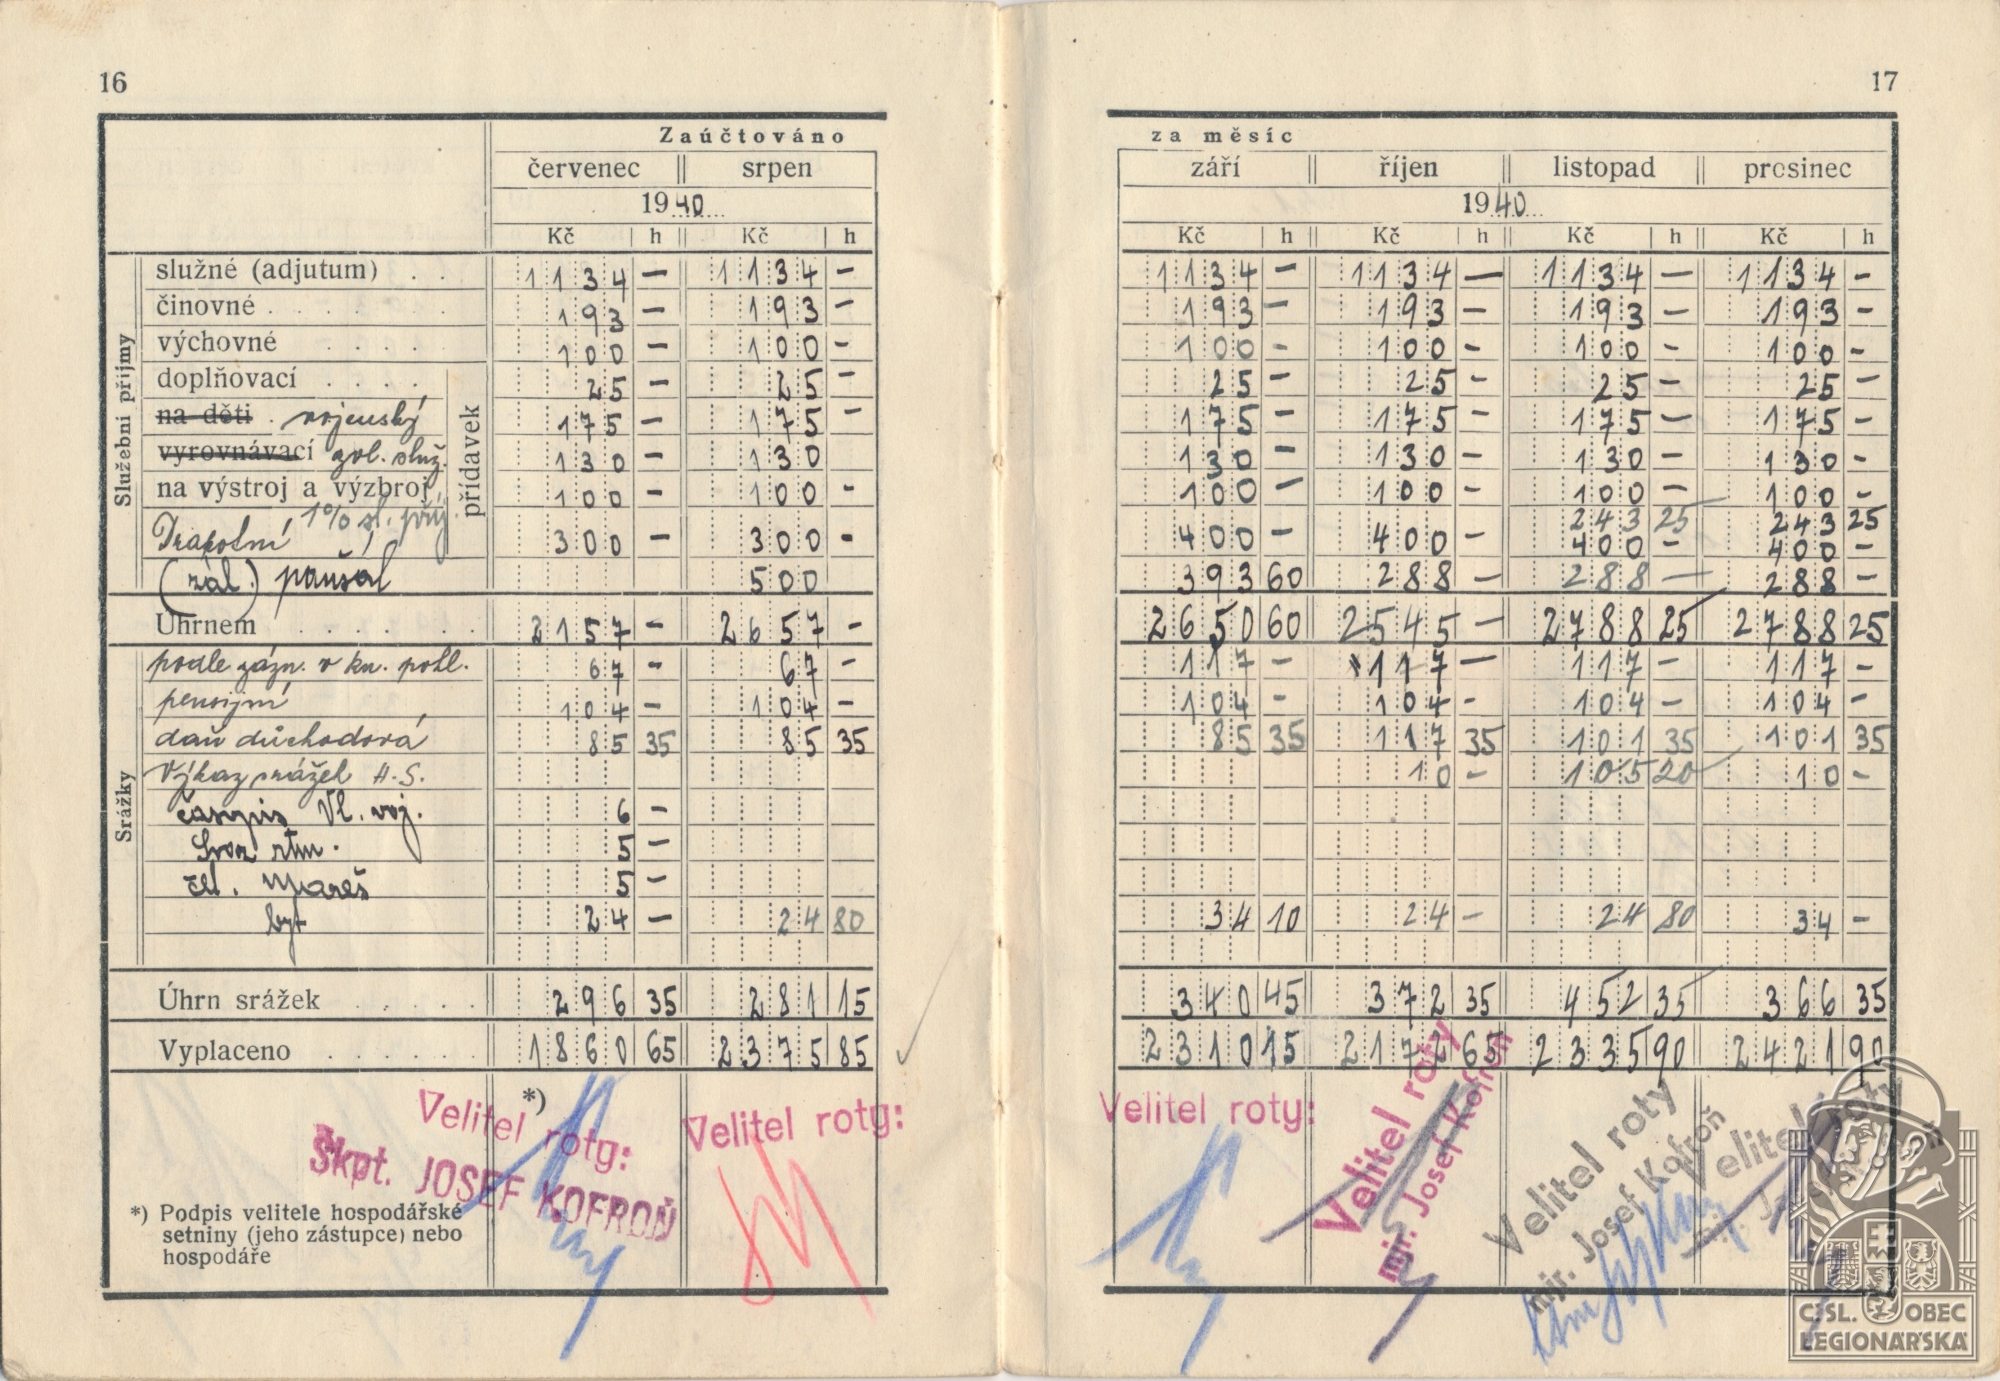 16
Zaúčtováno
červenec srpen
1940
Kč h Kč h
Služební příjmy
služné (adjutum) . . 1134 — 1134 —
činovné . . . . . . 193 — 193 —
výchovné . . . . 100 — 100 —
doplňovací . . . . 25 — 25 —
na děti . vojenský 175 — 175 —
vyrovnávací zvl. služ. 130 — 130
na výstroj a výzbroj 100 — 100 —
přídavek
1% sl. příj.
300 — 300 —
(zál.) paušál 500
Úhrnem . . . . . . 2157 — 2657 —
Srážky
podle zázn. v kn. pohl. 67 — 67 —
pensijní 104 — 104 —
daň důchodová 85 35 85 35
Výkaz srážek H.S.
časopis Vl. voj. 6 —
rtm. 5 —
čet. Mareš 5 —
byt 24 — 24 80
Úhrn srážek . . . . . 296 35 281 15
Vyplaceno . . . . . . 1860 65 2375 85
*)
Velitel roty:
Škpt. JOSEF KOFROŇ
Velitel roty:
*) Podpis velitele hospodářské
setniny (jeho zástupce) nebo
hospodáře
17
za měsíc
září říjen listopad prosinec
1940
Kč h Kč h Kč h Kč h
1134 — 1134 — 1134 — 1134 —
193 — 193 — 193 — 193 —
100 — 100 — 100 — 100 —
25 — 25 — 25 — 25 —
175 — 175 — 175 — 175 —
130 — 130 — 130 — 130 —
100 — 100 — 100 — 100 —
243 25 243 25
400 — 400 — 400 — 400 —
393 60 288 — 288 — 288 —
2650 60 2545 — 2788 25 2788 25
117 — 117 — 117 — 117 —
104 — 104 — 104 — 104 —
85 35 117 35 101 35 101 35
10 — 105 20 10 —
34 10 24 — 24 80 34 —
340 45 372 35 452 35 366 35
2310 15 2172 65 2335 90 2421 90
Velitel roty:
Velitel roty
mjr. Josef Kofroň
Velitel roty
mjr. Josef Kofroň
Velitel roty
mjr.
ČSL. OBEC
LEGIONÁŘSKÁ